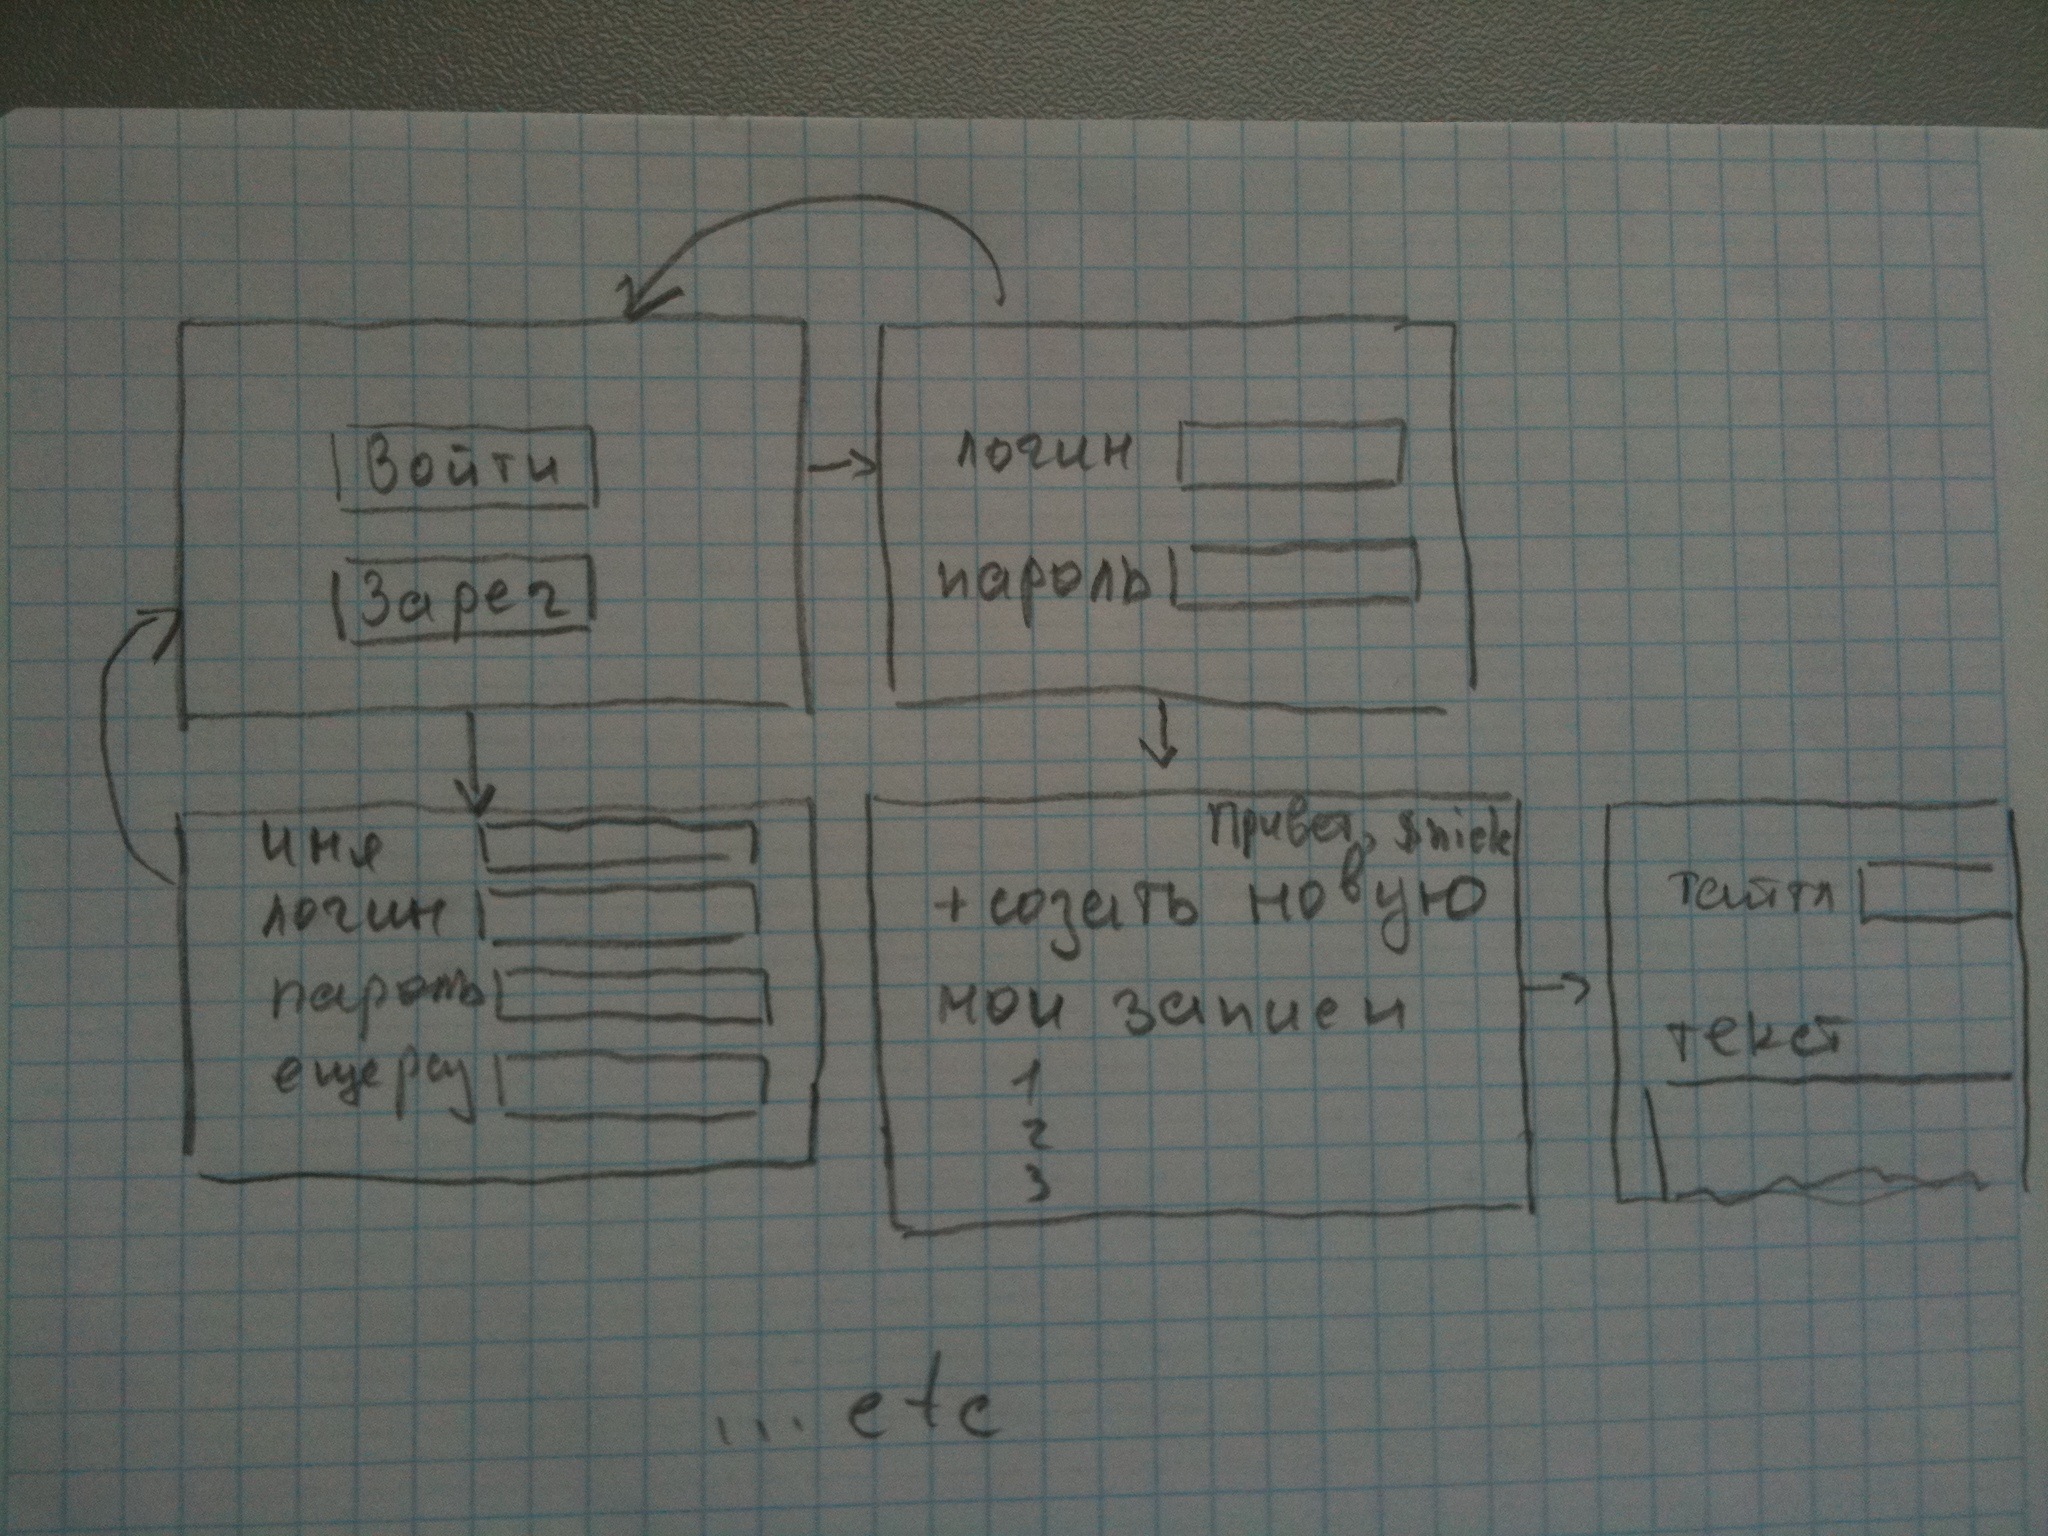 Войти
Зарег
логин
пароль
имя
логин
пароль
еще раз
Привет, $nick
+ созать новую
мои записи
1
2
3
тайтл
текст
... etc